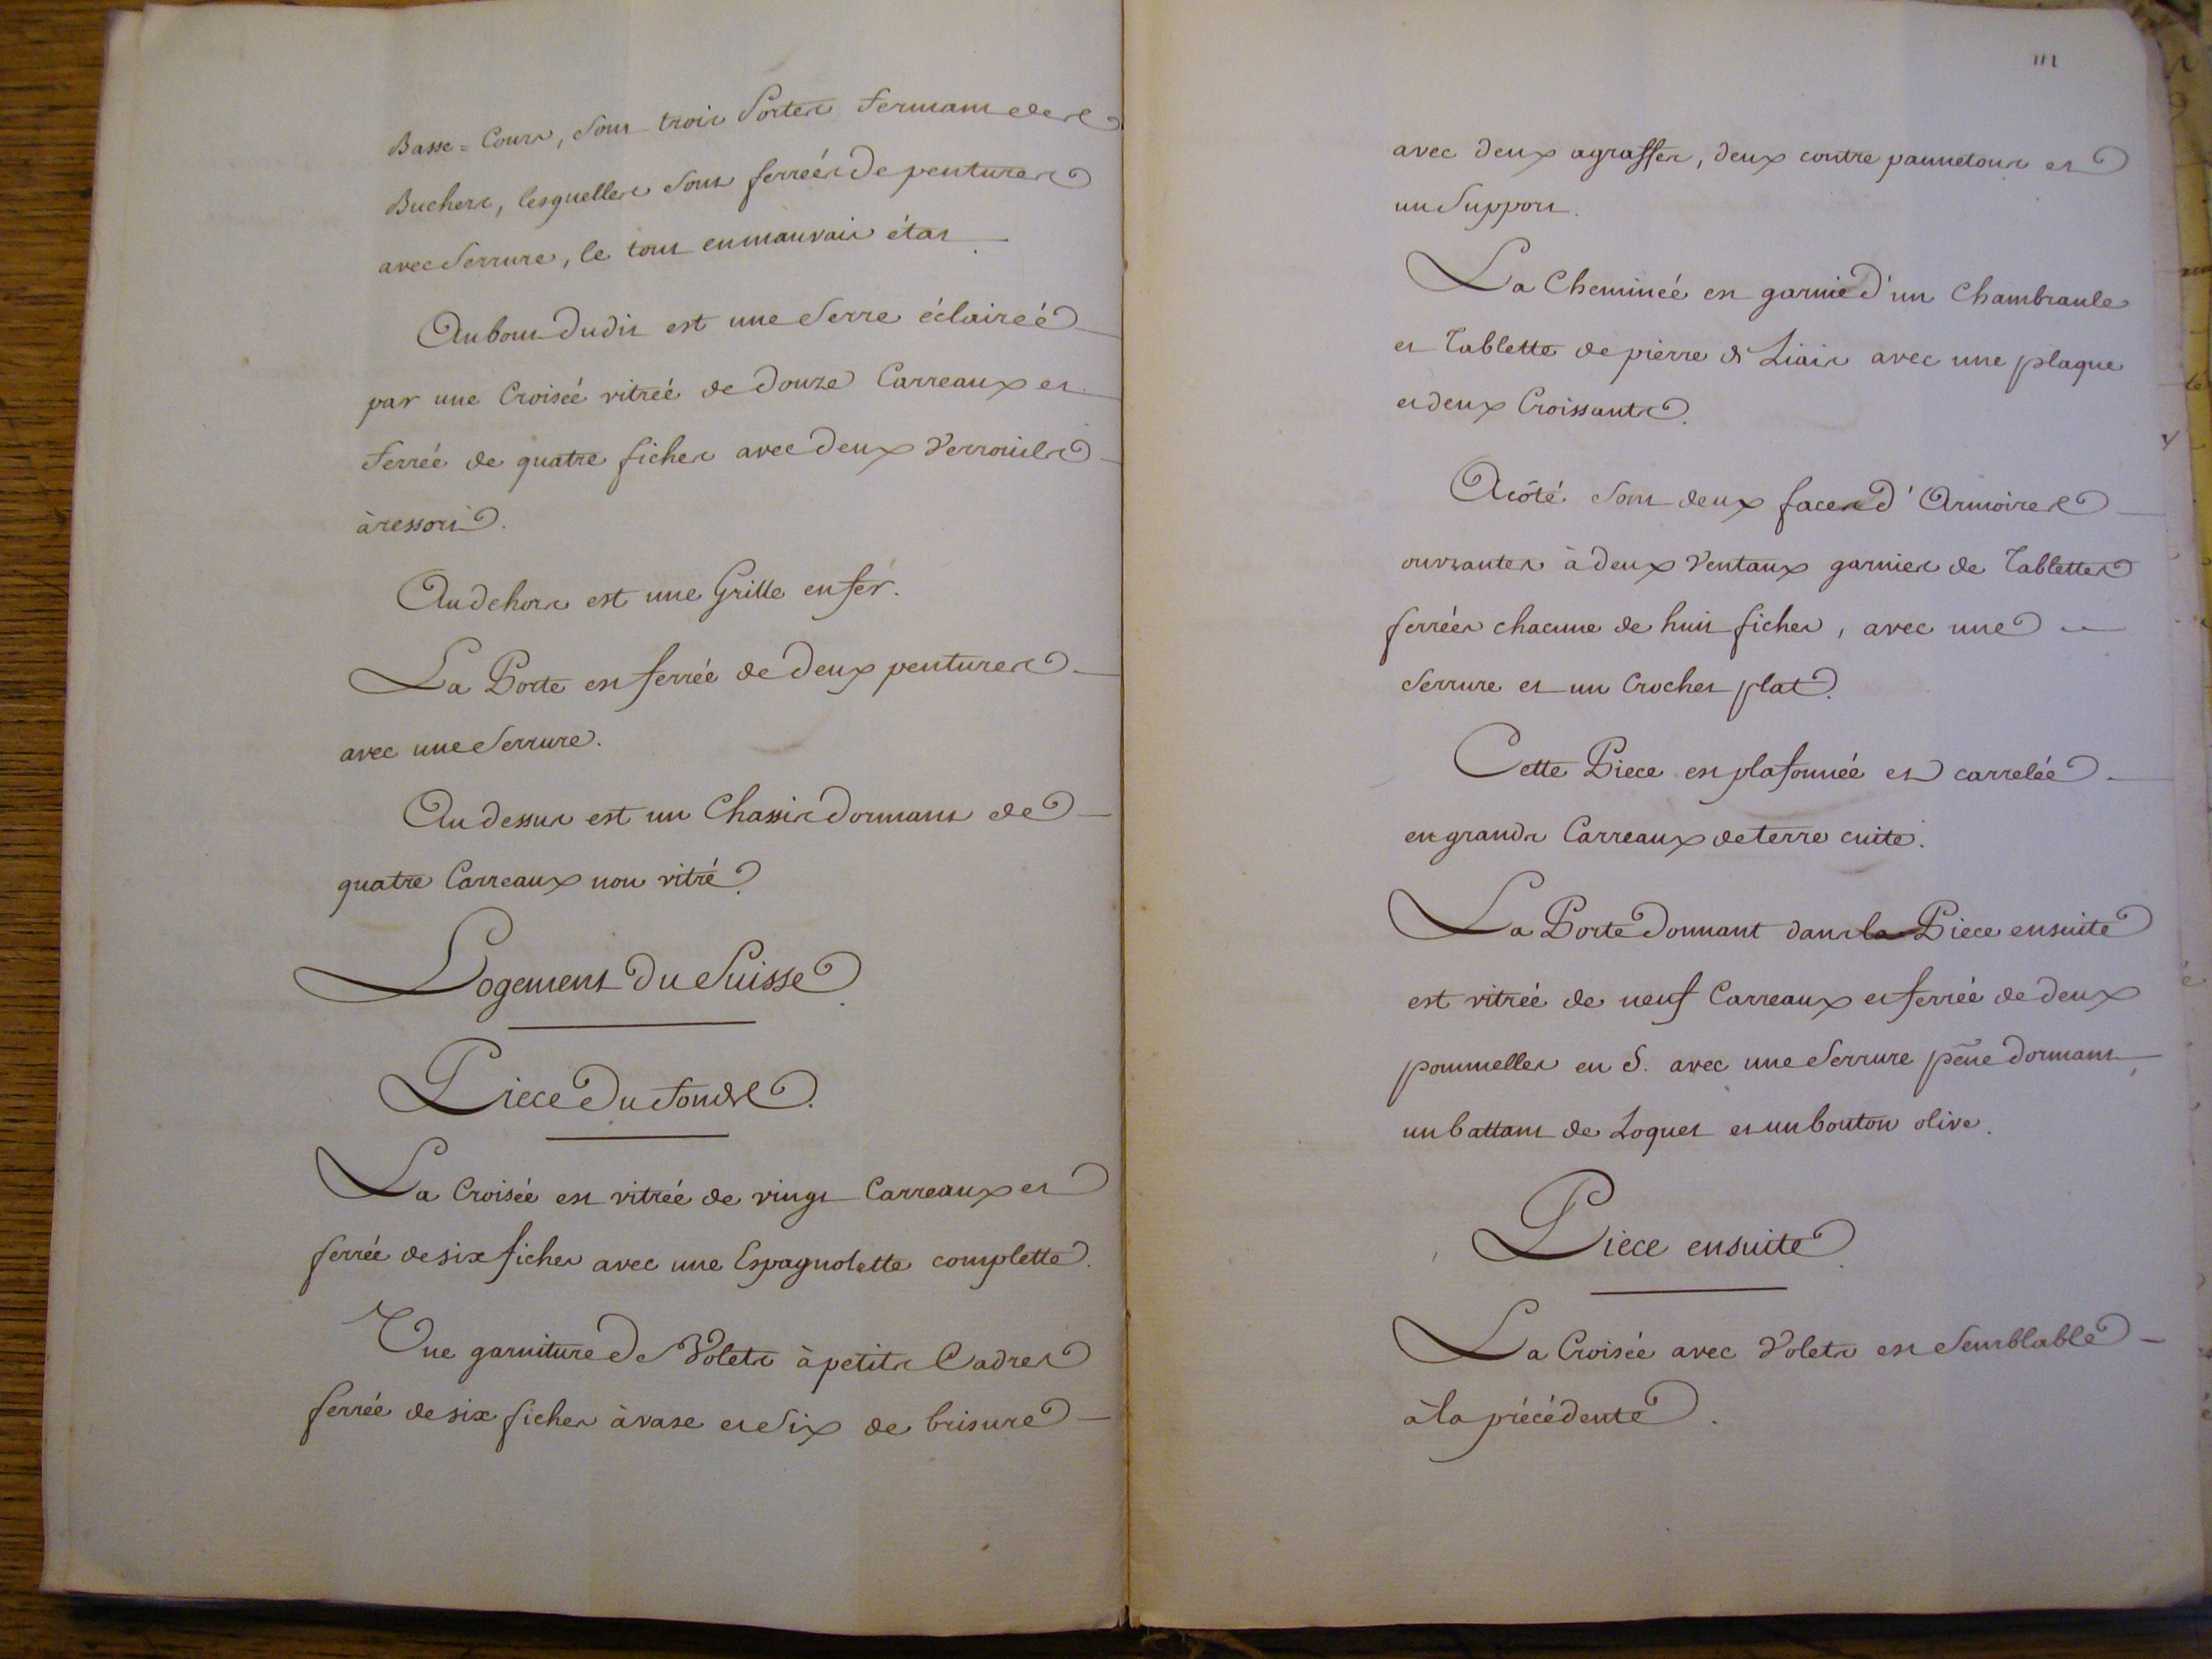 Basse=Cour, sont trois Portes fermant des
Buchers, lesquelles sont ferrées de pentures
avec Serrure, le tout en mauvais état.
Au bout dudit est une Serre éclairéé
par une Croiséé vitréé de Douze Carreaux et
ferréé de quatre fiches avec deux Verrouils
à ressort.
Au dehors est une Grille en fer.
La Porte est ferréé de deux pentures
avec une Serrure.
Au dessus est un Chassis Dormant de
quatre Carreaux non vitré.
Logement Du Suisse.
Piece Du fonds.
La Croiséé est vitréé de vingt Carreaux et
ferréé de six fiches avec une Espagnolette complette.
Une garniture De Volets à petits Cadres
ferréé de six fiches à vase et Six de brisure
111
avec deux agraffes, deux contre pannetons et
un Support.
La Cheminéé est garnie d'un Chambranle
et Tablette de pierre de Liais avec une plaque
et deux Croissants.
A côté sont deux faces d'Armoires
ouvrantes à deux Ventaux garnies de Tablettes
ferréés chacune de huit fiches, avec une
Serrure et un Crochet plat.
Cette Piece est plafonnéé et carreléé
en grands Carreaux de terre cuite.
La Porte Donnant dans la Piece ensuite
est vitréé de neuf Carreaux et ferréé de deux
pommelles en S. avec une Serrure pêne dormant,
un battant de Loquet et un bouton olive.
Piece ensuite.
La Croiséé avec Volets est Semblable
à la précédente.